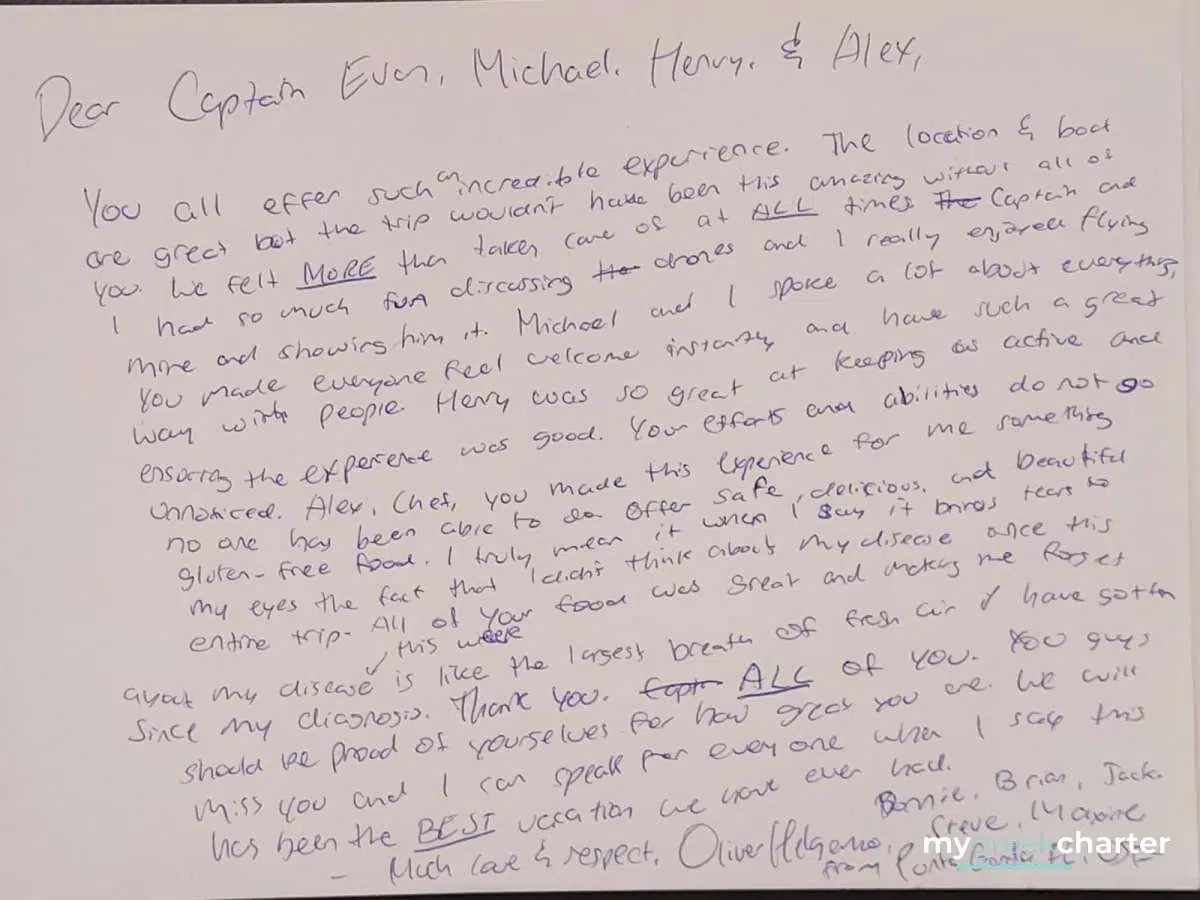 Dear Captain Evan, Michael, Henry, & Alex,
You all offer such an incredible experience. The location & boat
are great but the trip wouldn't have been this amazing without all of
you. We felt MORE than taken care of at ALL times. The Captain and
I had so much fun discussing the drones and I really enjoyed flying
mine and showing him it. Michael and I spoke a lot about everything,
you made everyone feel welcome instantly and have such a great
way with people. Henry was so great at keeping us active and
ensuring the experience was good. Your efforts and abilities do not go
unnoticed. Alex, Chef, you made this experience for me something
no one has been able to do offer safe, delicious, and beautiful
gluten-free food. I truly mean it when I say it brings tears to
my eyes the fact that I didn't think about my disease once this
entire trip. All of your food was great and making me forget
this week
about my disease is like the largest breath of fresh air I have gotten
since my diagnosis. Thank you. Capt ALL of you. You guys
should be proud of yourselves for how great you are. We will
miss you and I can speak for everyone when I say this
has been the BEST vacation we have ever had.
- Much love & respect, Oliver
Bonnie, Brian, Jack,
Steve, Maxine
from Punta Gorda FL, US
mygreekcharter